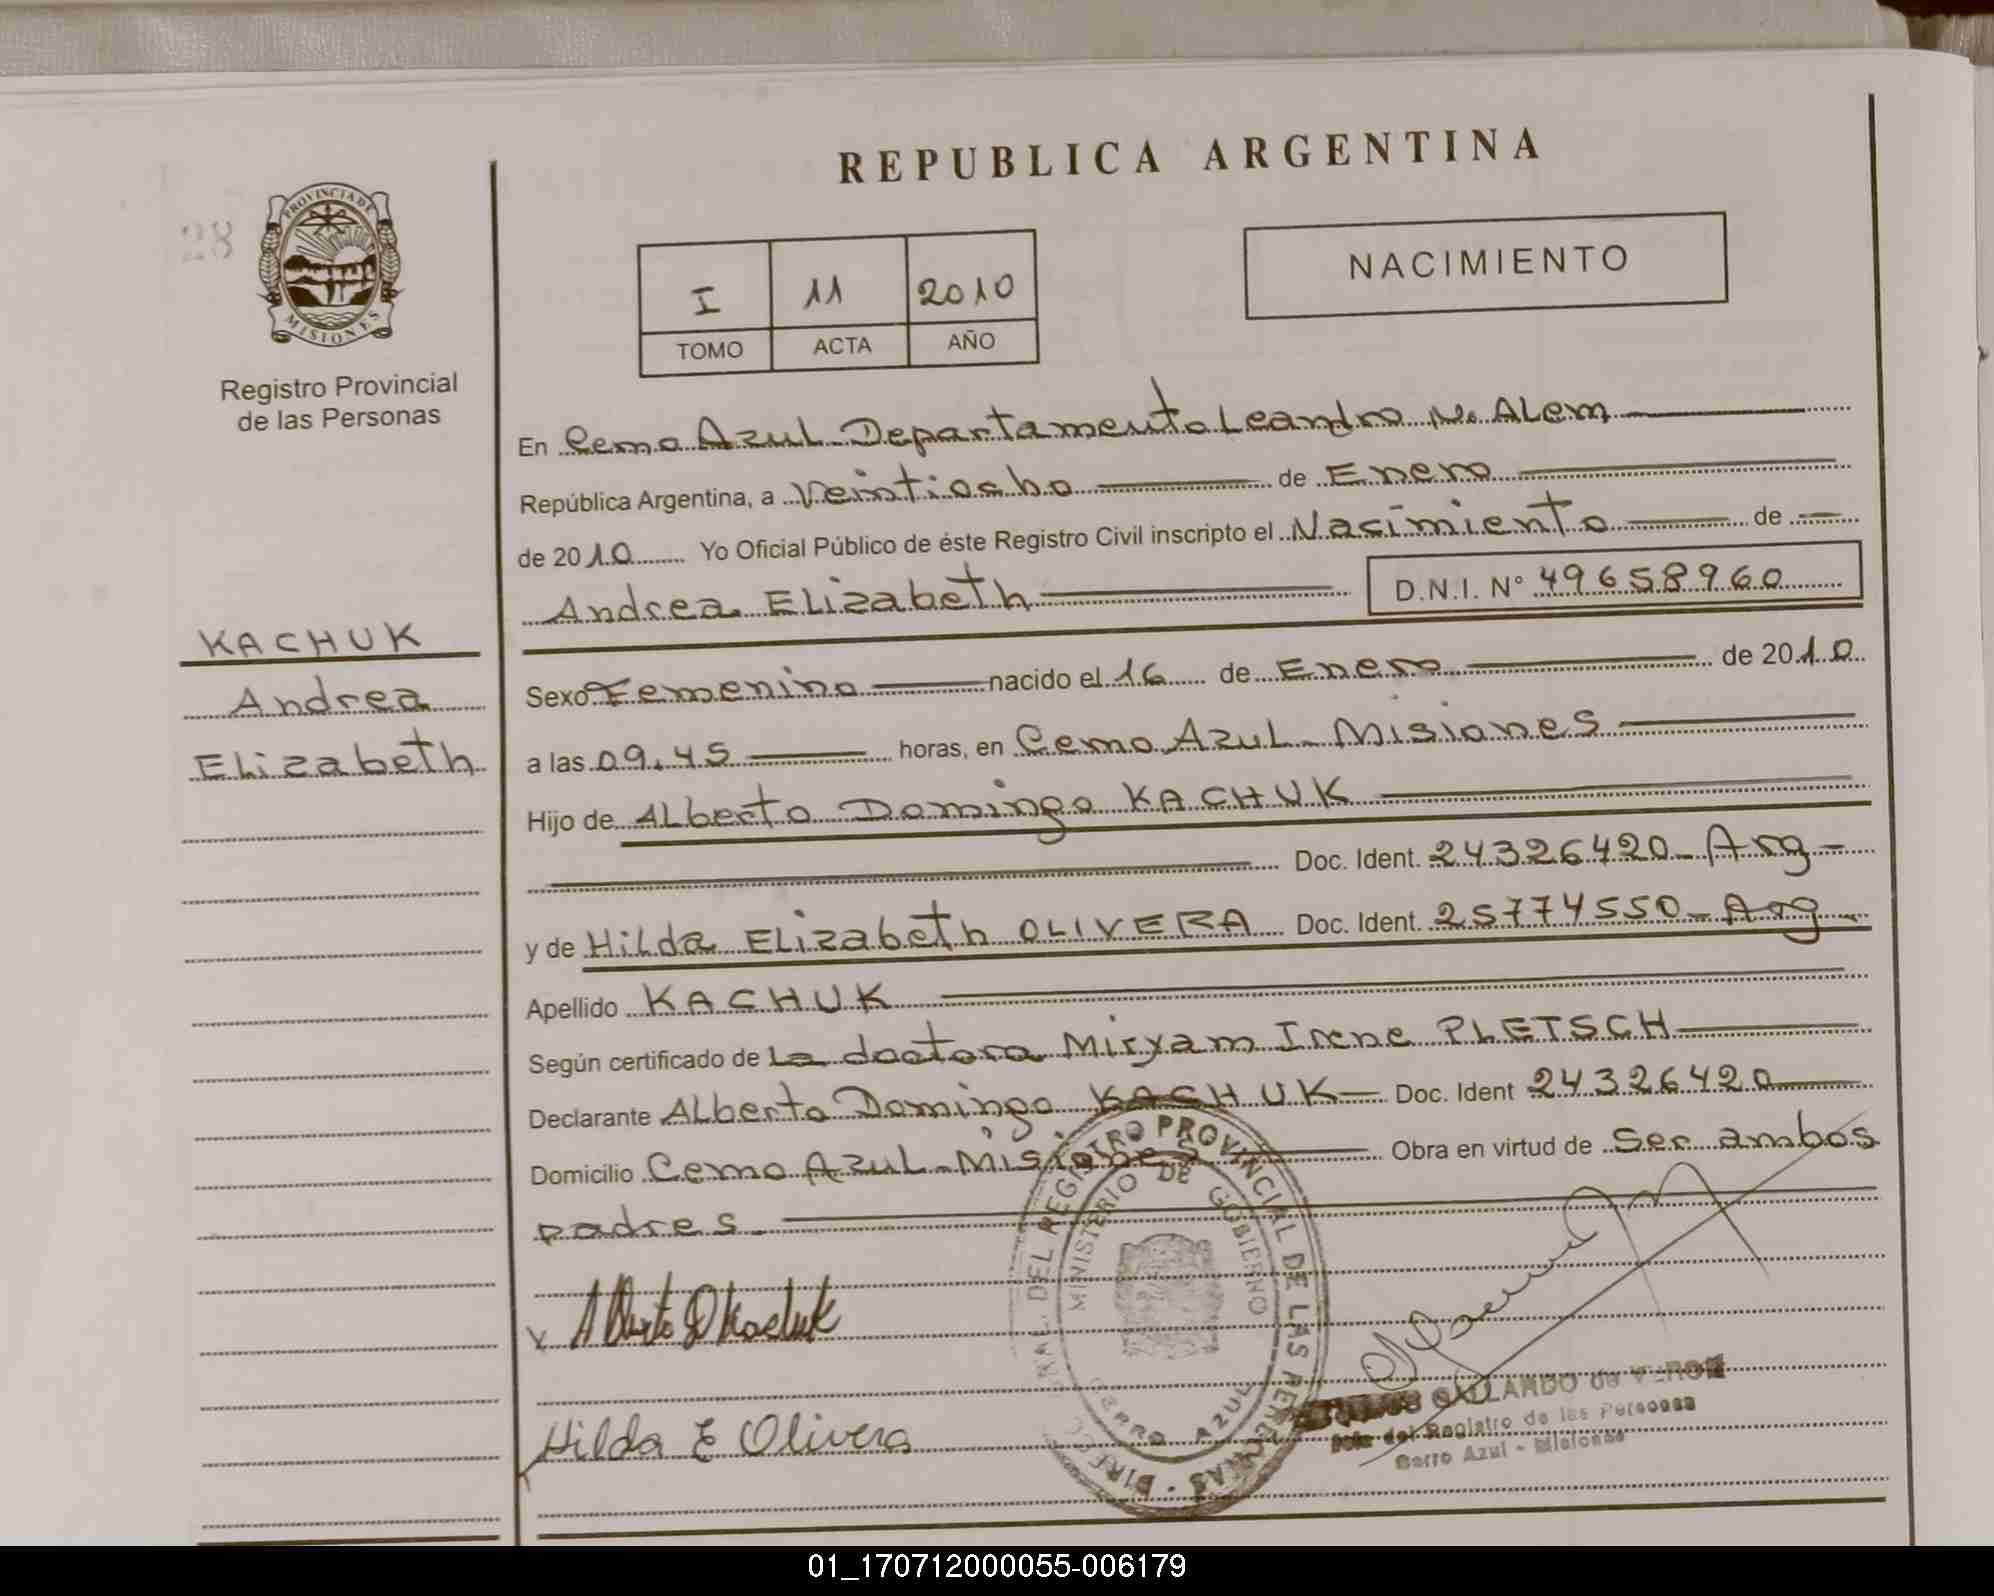 REPUBLICA ARGENTINA
28
PROVINCIA DE
MISIONES
Registro Provincial
de las Personas
I 11 2010
TOMO ACTA AÑO
NACIMIENTO
En Cerro Azul Departamento Leandro N. Alem
República Argentina, a Veintiocho de Enero
de 2010 Yo Oficial Público de éste Registro Civil inscripto el Nacimiento de
Andrea Elizabeth D.N.I. Nº 49658960
KACHUK
Andrea
Elizabeth
Sexo Femenino nacido el 16 de Enero de 2010
a las 09.45 horas, en Cerro Azul - Misiones
Hijo de Alberto Domingo KACHUK
Doc. Ident. 24326420 - Arg -
y de Hilda Elizabeth OLIVERA Doc. Ident. 25774550 - Arg -
Apellido KACHUK
Según certificado de La doctora Miryam Irene PLETSCH
Declarante Alberto Domingo KACHUK Doc. Ident 24326420
Domicilio Cerro Azul - Misiones Obra en virtud de Ser ambos
padres
Alberto D Kachuk
Hilda E Olivera
DEL REGISTRO PROVINCIAL DE LAS PERSONAS
MINISTERIO DE GOBIERNO
CERRO AZUL
GALLARDO de VERON
Jefe del Registro de las Personas
Cerro Azul - Misiones
01_170712000055-006179